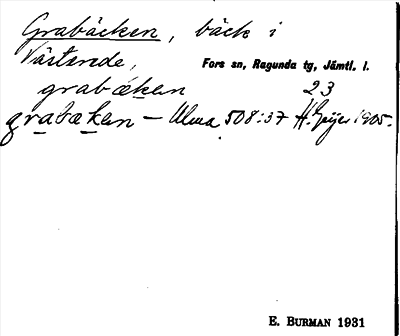 Grabäcken, bäck i
Västerede, Fors sn, Ragunda tg, Jämtl. l.
grabæken 23
grabæken — Ulma 508:37 H. Geijer 1905.
E. BURMAN 1931